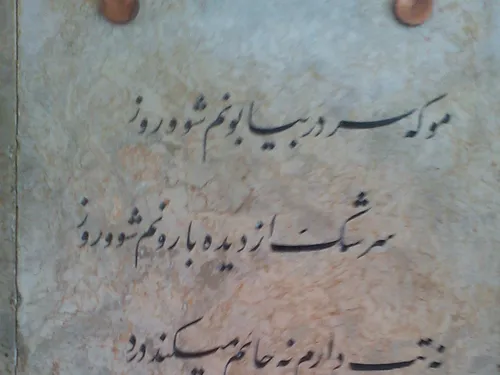 موکه سر در بیابونم شو و روز
سرشک از دیده بارونم شو و روز
نه تب دارم نه جائم میکند درد